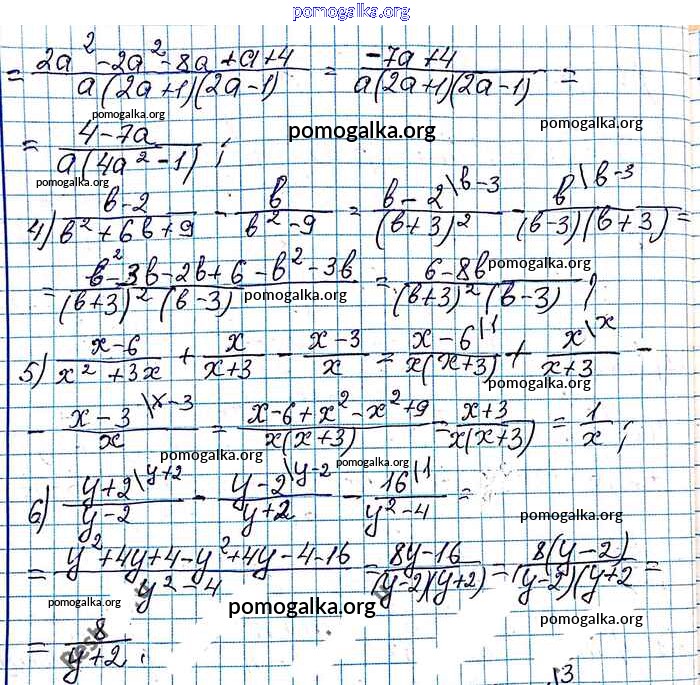 pomogalka.org
= (2a² - 2a² - 8a + a + 4)/(a(2a+1)(2a-1)) = (-7a+4)/(a(2a+1)(2a-1)) =
pomogalka.org pomogalka.org pomogalka.org
= (4-7a)/(a(4a²-1));
pomogalka.org
4) (b-2)/(b²+6b+9) - b/(b²-9) = (b-2\b-3)/((b+3)²) - (b\b-3)/((b-3)(b+3)) =
= (b²-3b-2b+6-b²-3b)/((b+3)²(b-3)) = (6-8b)/((b+3)²(b-3));
pomogalka.org pomogalka.org pomogalka.org
5) (x-6)/(x²+3x) + x/(x+3) - (x-3)/x = (x-6\1)/(x(x+3)) + (x\x)/(x+3) -
pomogalka.org
- (x-3\x-3)/x = (x-6+x²-x²+9)/(x(x+3)) = (x+3)/(x(x+3)) = 1/x;
pomogalka.org pomogalka.org
6) (y+2\y+2)/(y-2) - (y-2\y-2)/(y+2) - (16\1)/(y²-4) =
pomogalka.org
= (y²+4y+4-y²+4y-4-16)/(y²-4) = (8y-16)/((y-2)(y+2)) = (8(y-2))/((y-2)(y+2 =
pomogalka.org pomogalka.org pomogalka.org
= 8/(y+2).